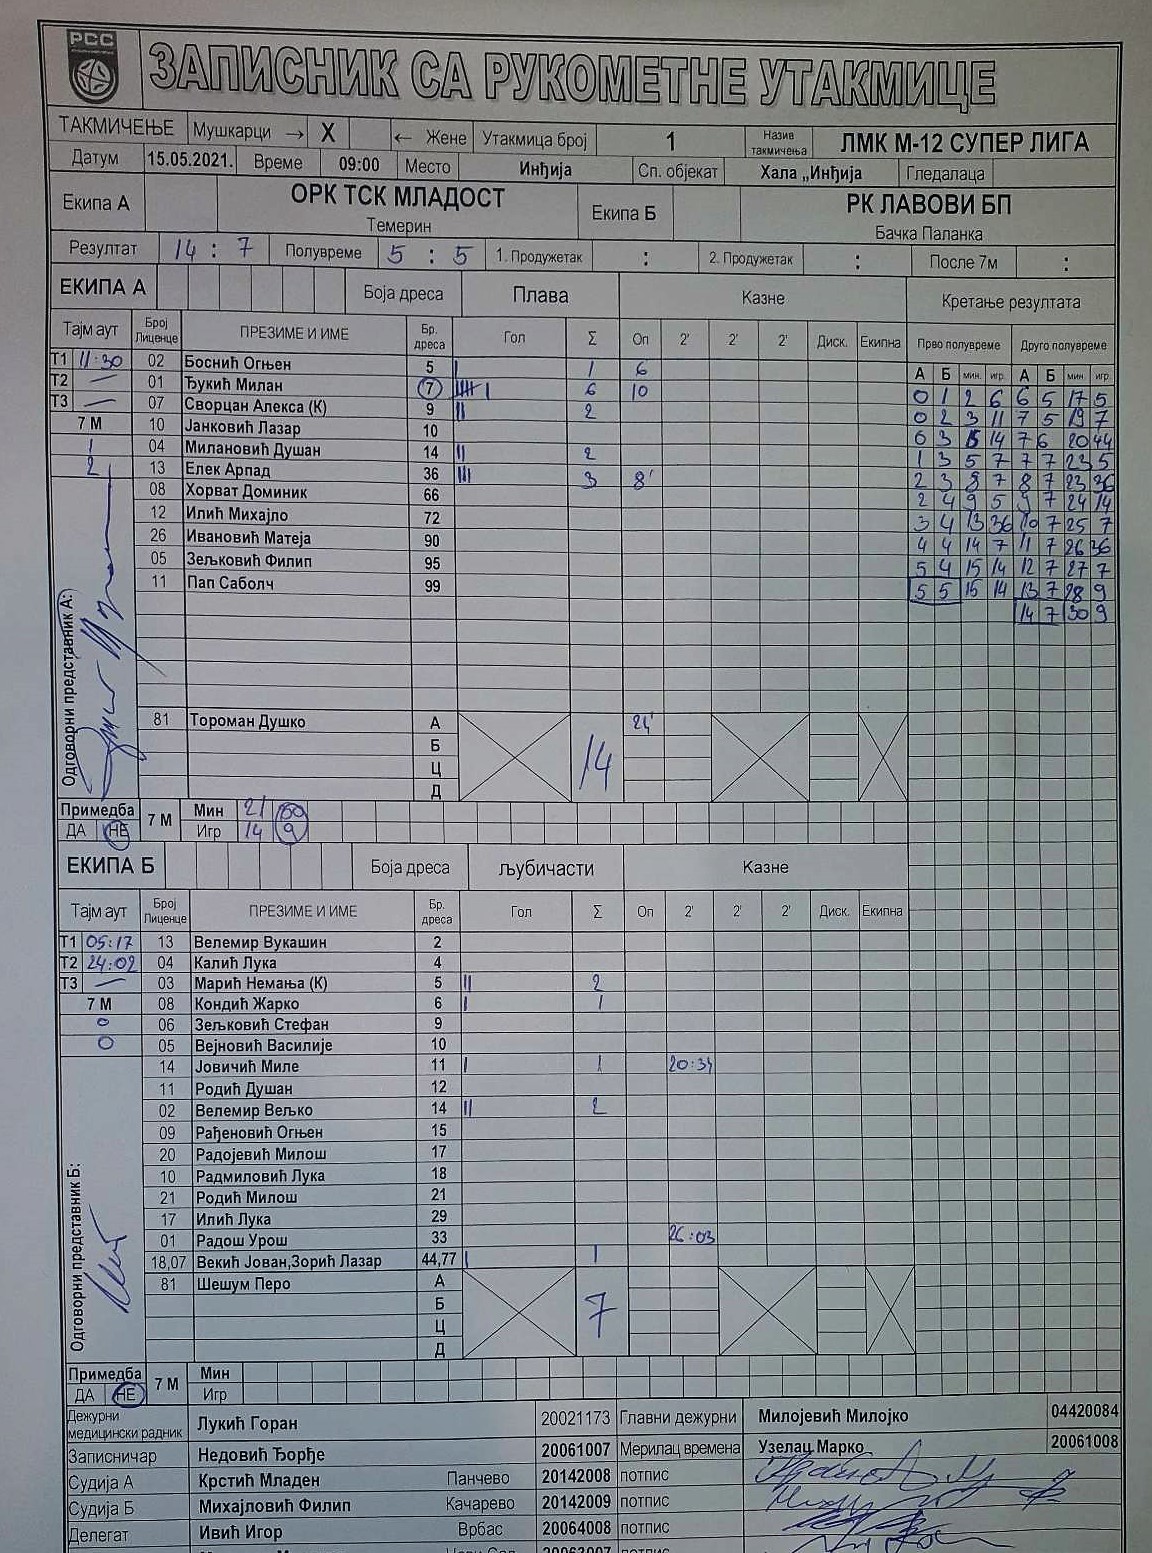 РСС
ЗАПИСНИК СА РУКОМЕТНЕ УТАКМИЦЕ
ТАКМИЧЕЊЕ Мушкарци → X ← Жене Утакмица број 1 Назив такмичења ЛМК М-12 СУПЕР ЛИГА
Датум 15.05.2021. Време 09:00 Место Инђија Сп. објекат Хала „Инђија Гледалаца
Екипа А ОРК ТСК МЛАДОСТ Екипа Б РК ЛАВОВИ БП
Темерин Бачка Паланка
Резултат 14 : 7 Полувреме 5 : 5 1. Продужетак : 2. Продужетак : После 7м :
ЕКИПА А Боја дреса Плава Казне Кретање резултата
Тајм аут Број Лиценце ПРЕЗИМЕ И ИМЕ Бр. дреса Гол Σ Оп 2' 2' 2' Диск. Екипна Прво полувреме Друго полувреме
А Б мин. игр. А Б мин. игр.
Т1 11:30 02 Боснић Огњен 5 I 1 6
Т2 — 01 Ђукић Милан 7 IIIII I 6 10 0 1 2 6 6 5 17 5
Т3 — 07 Сворцан Алекса (К) 9 II 2 0 2 3 11 7 5 19 7
7 М 10 Јанковић Лазар 10 0 3 5 14 7 6 20 44
1 04 Милановић Душан 14 II 2 1 3 5 7 7 7 23 5
2 13 Елек Арпад 36 III 3 8' 2 3 8 7 8 7 23 36
08 Хорват Доминик 66 2 4 9 5 9 7 24 14
12 Илић Михајло 72 3 4 13 36 10 7 25 7
26 Ивановић Матеја 90 4 4 14 7 11 7 26 36
05 Зељковић Филип 95 5 4 15 14 12 7 27 7
11 Пап Саболч 99 5 5 15 14 13 7 28 9
14 7 30 9
Одговорни представник А:
81 Тороман Душко А 24'
Б
Ц 14
Д
Примедба 7 М Мин 21
ДА НЕ Игр 14 9
ЕКИПА Б Боја дреса љубичасти Казне
Тајм аут Број Лиценце ПРЕЗИМЕ И ИМЕ Бр. дреса Гол Σ Оп 2' 2' 2' Диск. Екипна
Т1 05:17 13 Велемир Вукашин 2
Т2 24:02 04 Калић Лука 4
Т3 — 03 Марић Немања (К) 5 II 2
7 М 08 Кондић Жарко 6 I 1
0 06 Зељковић Стефан 9
0 05 Вејновић Василије 10
14 Јовичић Миле 11 I 1 20:34
11 Родић Душан 12
02 Велемир Вељко 14 II 2
09 Рађеновић Огњен 15
20 Радојевић Милош 17
10 Радмиловић Лука 18
21 Родић Милош 21
17 Илић Лука 29
01 Радош Урош 33 26:03
18,07 Векић Јован,Зорић Лазар 44,77 I 1
Одговорни представник Б:
81 Шешум Перо А
Б 7
Ц
Д
Примедба 7 М Мин
ДА НЕ Игр
Дежурни медицински радник Лукић Горан 20021173 Главни дежурни Милојевић Милојко 04420084
Записничар Недовић Ђорђе 20061007 Мерилац времена Узелац Марко 20061008
Судија А Крстић Младен Панчево 20142008 потпис
Судија Б Михајловић Филип Качарево 20142009 потпис
Делегат Ивић Игор Врбас 20064008 потпис